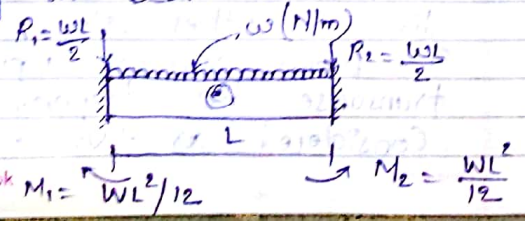 R₁ = WL/2
w (N/m)
R₂ = WL/2
L
M₁ = WL²/12
M₂ = WL²/12